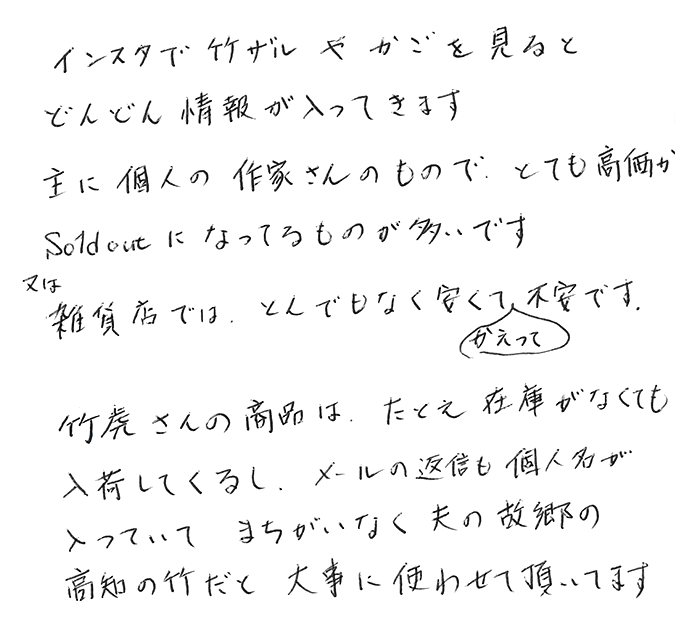 インスタで竹ザルやかごを見ると
どんどん情報が入ってきます
主に個人の作家さんのもので、とても高価か
Sold outになってるものが多いです
又は
雑貨店では、とんでもなく安くて、不安です。
かえって
竹虎さんの商品は、たとえ在庫がなくても
入荷してくるし、メールの返信も個人名が
入っていて まちがいなく夫の故郷の
高知の竹だと 大事に使わせて頂いてます